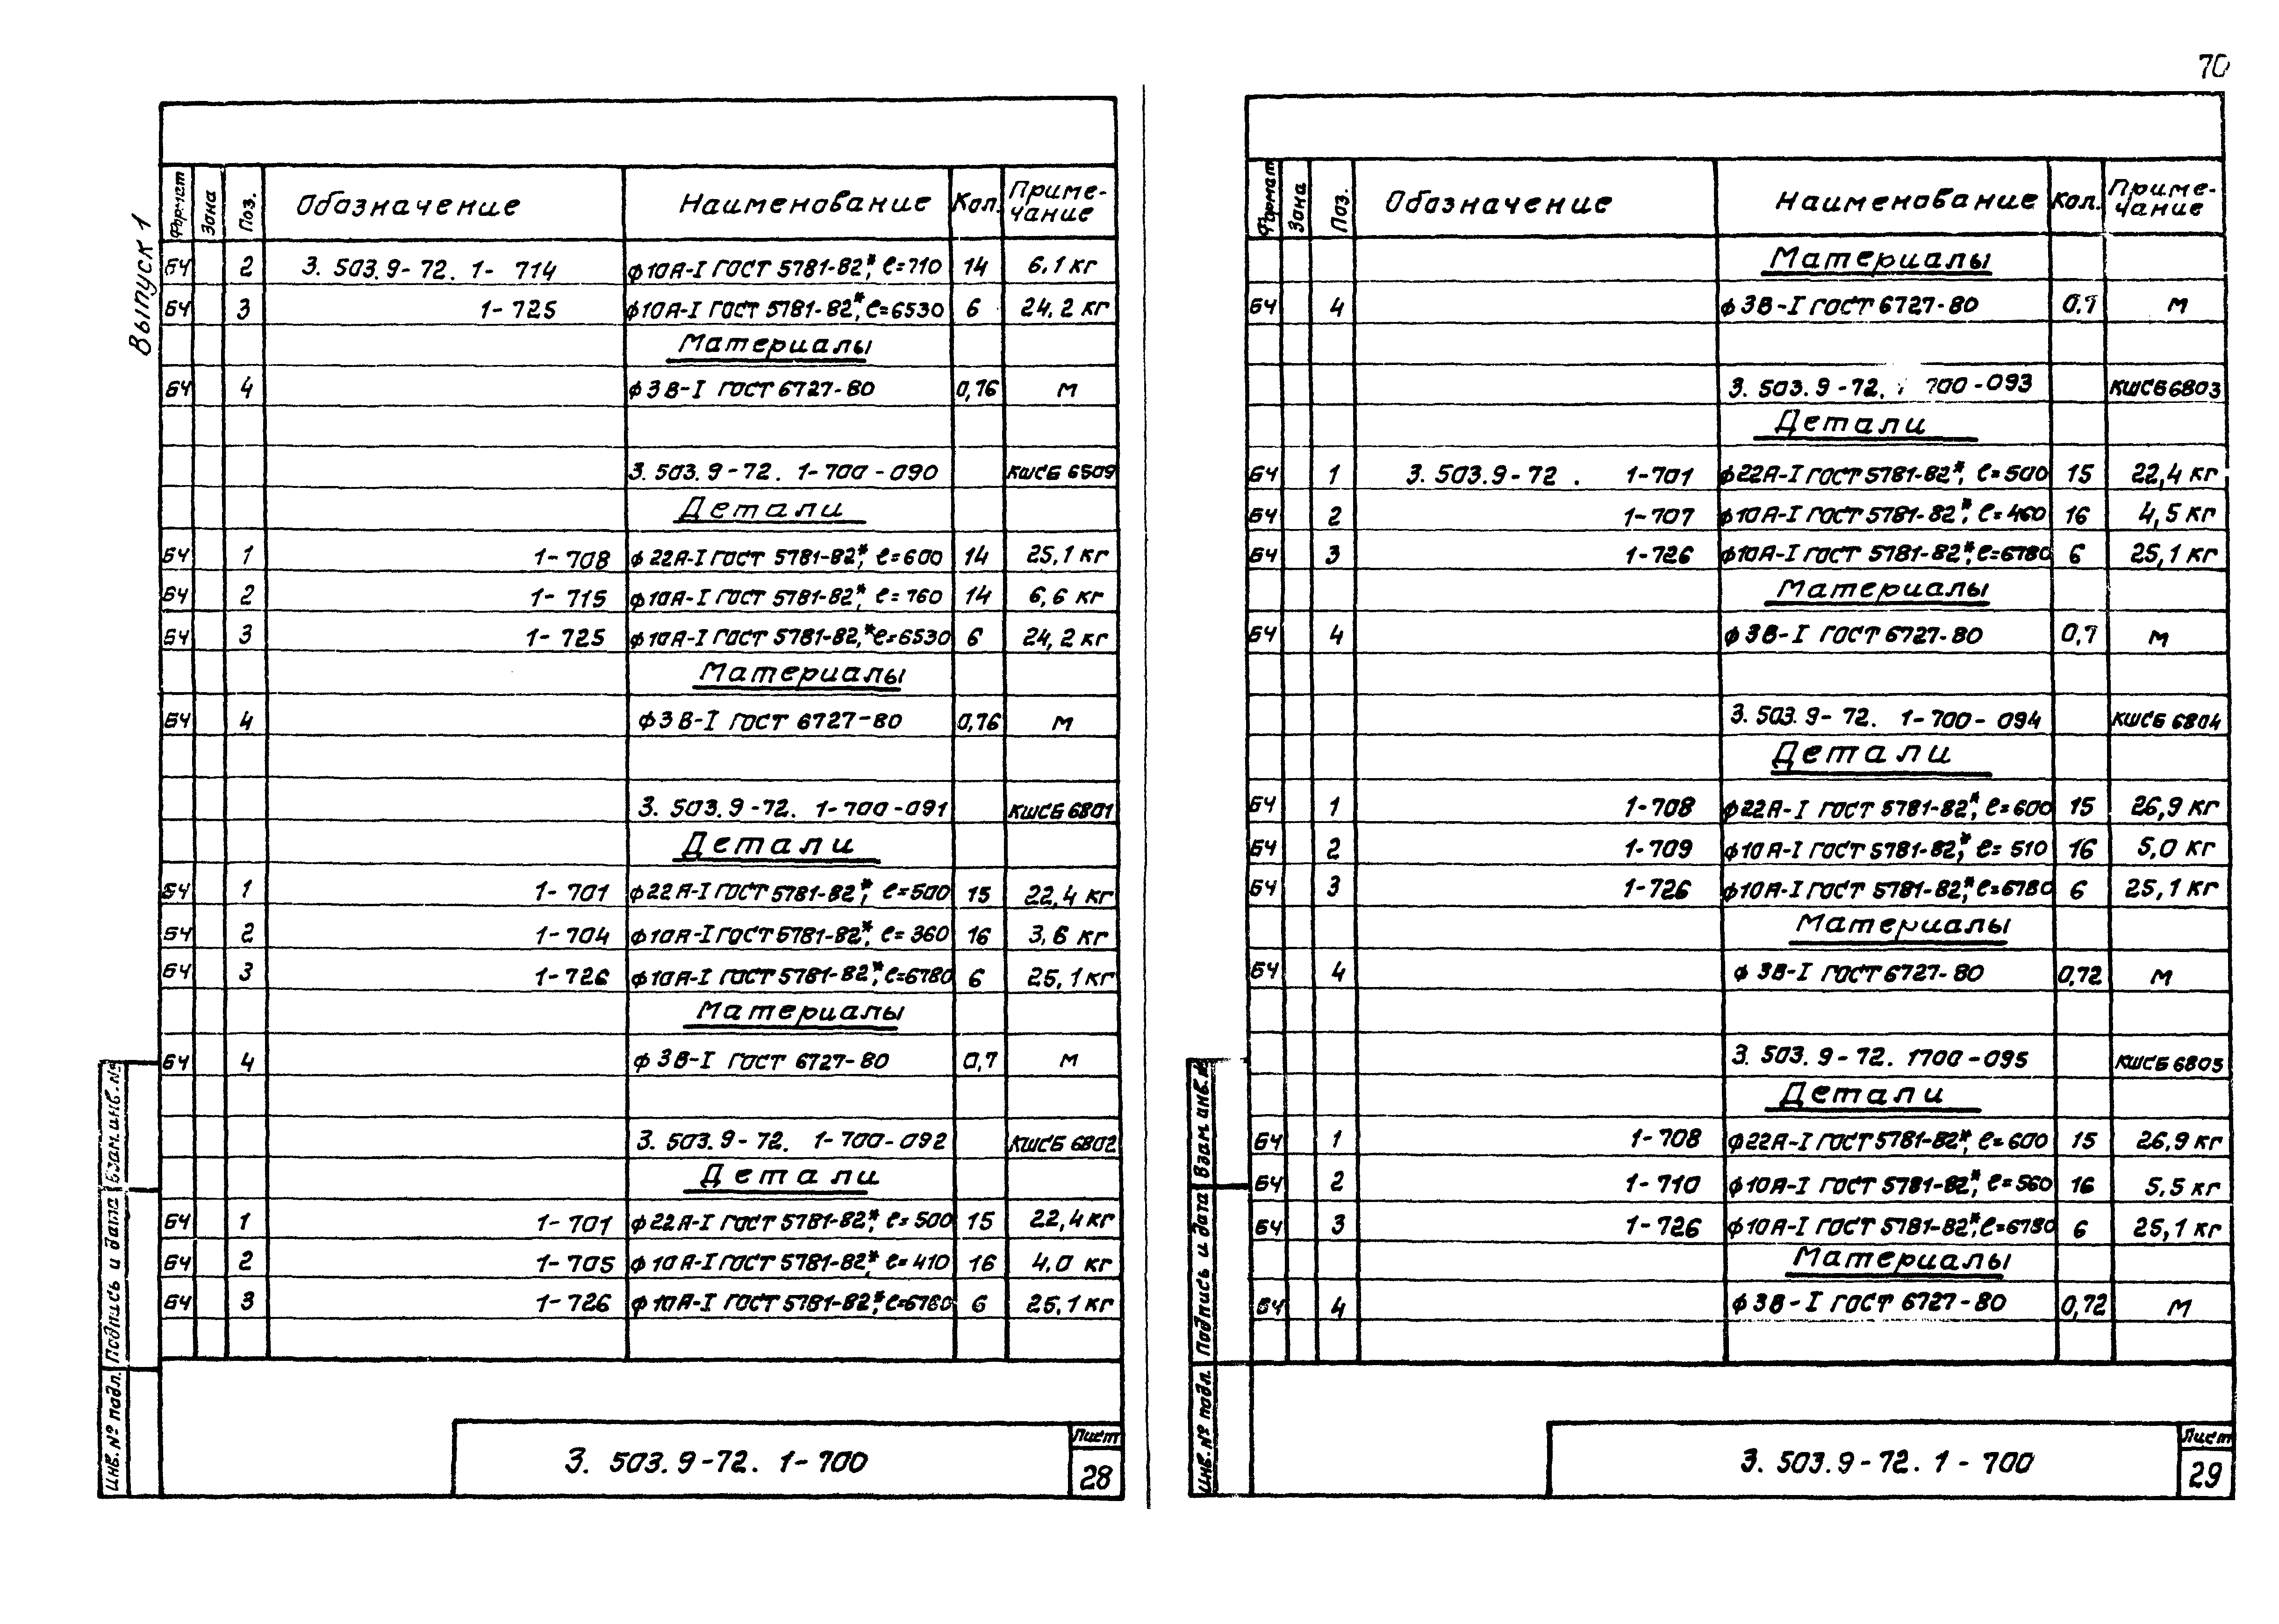 70
Выпуск 1
Формат Зона Поз. Обозначение Наименование Кол. Приме-
чание
БЧ 2 3. 503. 9 - 72. 1 - 714 ф10А-I ГОСТ 5781-82*, ℓ=710 14 6,1 кг
БЧ 3 1 - 725 ф10А-I ГОСТ 5781-82*, ℓ=6530 6 24,2 кг
Материалы
БЧ 4 ф3В-I ГОСТ 6727-80 0,76 м
3. 503. 9 - 72. 1 - 700 - 090 КШСБ 6509
Детали
БЧ 1 1 - 708 ф22А-I ГОСТ 5781-82*, ℓ=600 14 25,1 кг
БЧ 2 1 - 715 ф10А-I ГОСТ 5781-82*, ℓ=760 14 6,6 кг
БЧ 3 1 - 725 ф10А-I ГОСТ 5781-82,* ℓ=6530 6 24,2 кг
Материалы
БЧ 4 ф3В-I ГОСТ 6727-80 0,76 м
3. 503. 9 - 72. 1 - 700 - 091 КШСБ 6801
Детали
БЧ 1 1 - 701 ф22А-I ГОСТ 5781-82*, ℓ=500 15 22,4 кг
БЧ 2 1 - 704 ф10А-I ГОСТ 5781-82*, ℓ=360 16 3,6 кг
БЧ 3 1 - 726 ф10А-I ГОСТ 5781-82*, ℓ=6780 6 25,1 кг
Материалы
БЧ 4 ф3В-I ГОСТ 6727-80 0,7 м
3. 503. 9 - 72. 1 - 700 - 092 КШСБ 6802
Детали
БЧ 1 1 - 701 ф22А-I ГОСТ 5781-82*, ℓ=500 15 22,4 кг
БЧ 2 1 - 705 ф10А-I ГОСТ 5781-82*, ℓ=410 16 4,0 кг
БЧ 3 1 - 726 ф10А-I ГОСТ 5781-82*, ℓ=6780 6 25,1 кг
Инв. № подл. Подпись и дата Взам. инв. №
3. 503. 9 - 72. 1 - 700
Лист
28
Формат Зона Поз. Обозначение Наименование Кол. Приме-
чание
Материалы
БЧ 4 ф3В-I ГОСТ 6727-80 0,7 м
3. 503. 9 - 72. 700 - 093 КШСБ 6803
Детали
БЧ 1 3. 503. 9 - 72 . 1 - 701 ф22А-I ГОСТ 5781-82*, ℓ=500 15 22,4 кг
БЧ 2 1 - 707 ф10А-I ГОСТ 5781-82*, ℓ=460 16 4,5 кг
БЧ 3 1 - 726 ф10А-I ГОСТ 5781-82*, ℓ=6780 6 25,1 кг
Материалы
БЧ 4 ф3В-I ГОСТ 6727-80 0,7 м
3. 503. 9 - 72. 1 - 700 - 094 КШСБ 6804
Детали
БЧ 1 1 - 708 ф22А-I ГОСТ 5781-82*, ℓ=600 15 26,9 кг
БЧ 2 1 - 709 ф10А-I ГОСТ 5781-82*, ℓ=510 16 5,0 кг
БЧ 3 1 - 726 ф10А-I ГОСТ 5781-82*, ℓ=6780 6 25,1 кг
Материалы
БЧ 4 ф3В-I ГОСТ 6727-80 0,72 м
3. 503. 9 - 72. 1700 - 095 КШСБ 6805
Детали
БЧ 1 1 - 708 ф22А-I ГОСТ 5781-82*, ℓ=600 15 26,9 кг
БЧ 2 1 - 710 ф10А-I ГОСТ 5781-82*, ℓ=560 16 5,5 кг
БЧ 3 1 - 726 ф10А-I ГОСТ 5781-82*, ℓ=6780 6 25,1 кг
Материалы
БЧ 4 ф3В-I ГОСТ 6727-80 0,72 м
Инв. № подл. Подпись и дата Взам. инв. №
3. 503. 9 - 72. 1 - 700
Лист
29